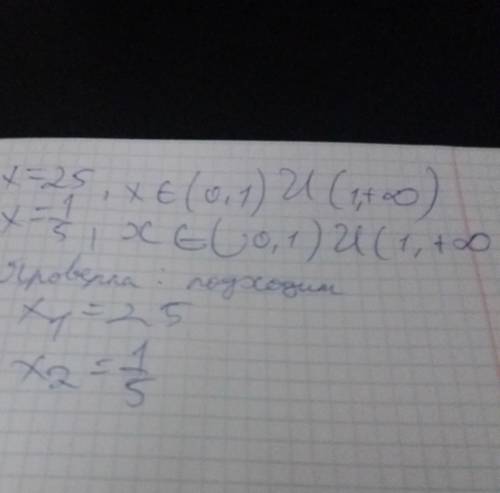 x=25, x∈(0,1) U (1,+∞)
x=1/5, x∈(0,1) U (1,+∞
Проверка: подходит
x₁=25
x₂=1/5